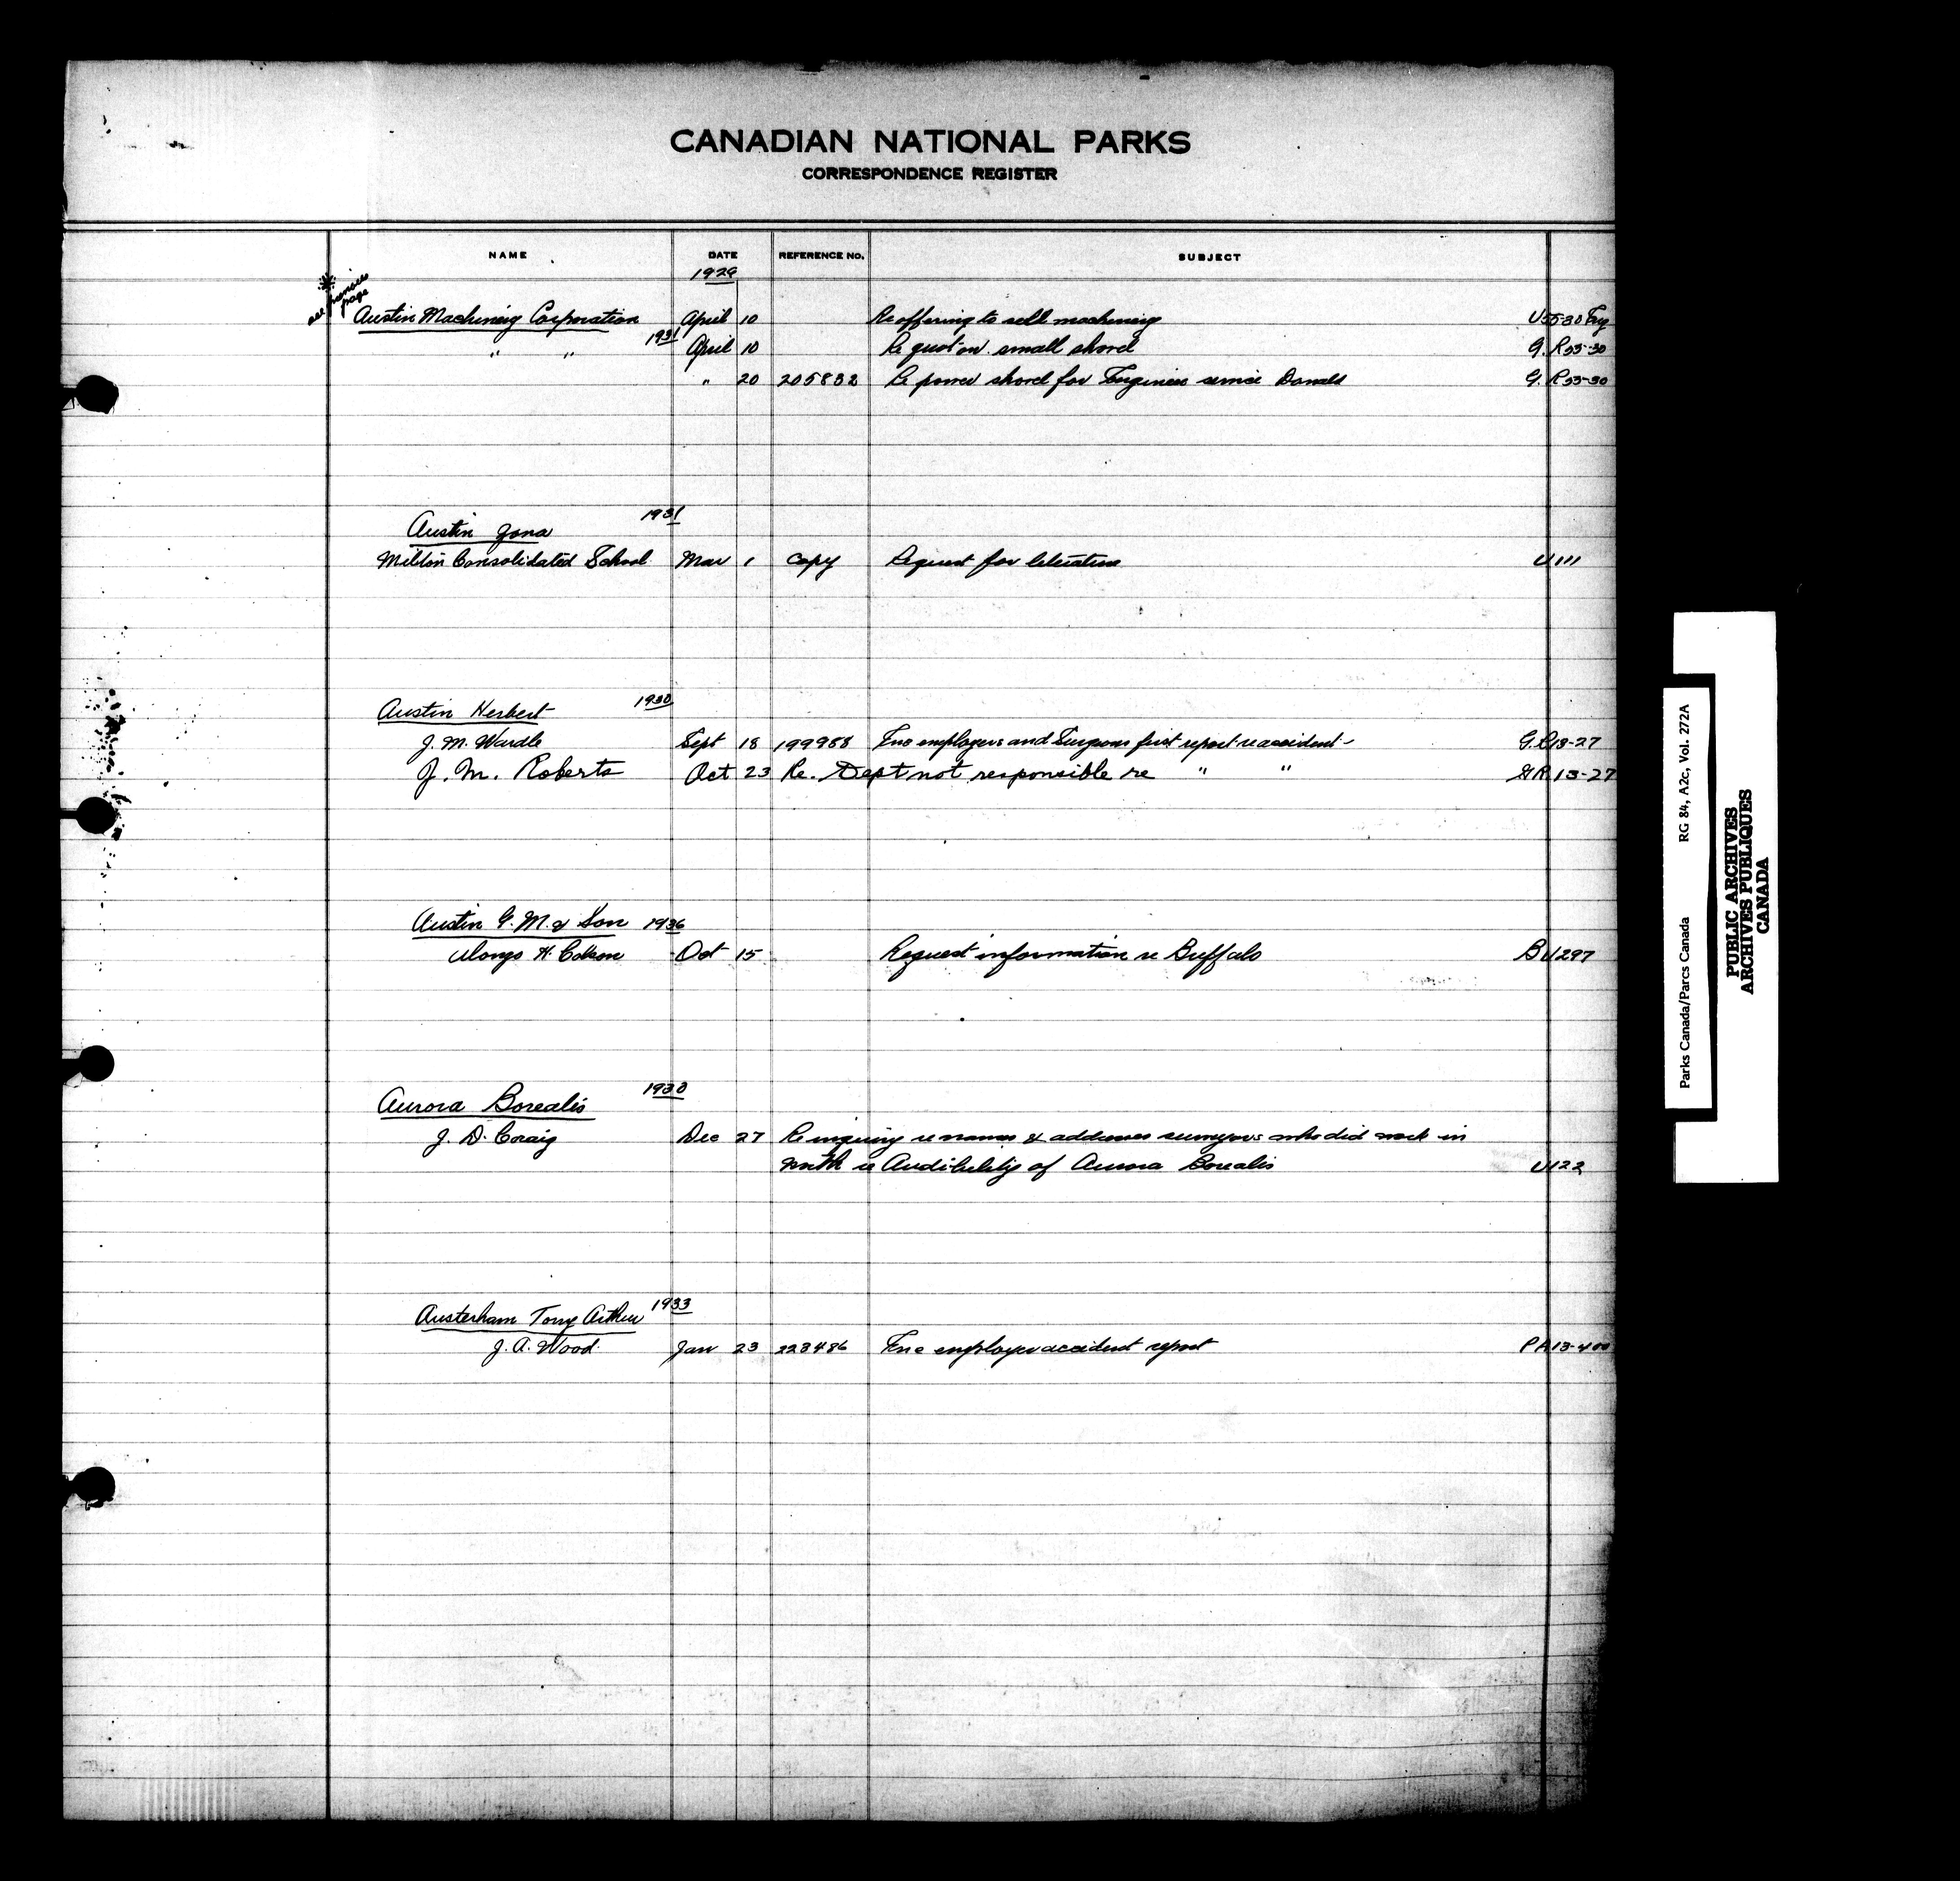 CANADIAN NATIONAL PARKS
CORRESPONDENCE REGISTER
NAME DATE REFERENCE NO. SUBJECT
1929
* see previous page
Austin Machinery Corporation April 10 Re offering to sell machinery U55-30 Eng
1931
" " April 10 Re quot on small shovel G.R55-30
" 20 205832 Re power shovel for Engineer service Donald G.R55-30
Austin Jona 1931
Consolidated School Mar 1 copy Request for literature U111
Austin Herbert 1930
J. M. Wardle Sept 18 199988 Enc employers and Surgeons first report re accident G.R13-27
J. M. Roberts Oct 23 Re. Dept not responsible re " " G.R.13-27
Austin G. M. & Son 1936
H. Oct 15 Request information re Buffalo BU297
Aurora Borealis 1930
J. D. Craig Dec 27 Re inquiry re names & addresses surveyors who did work in
north re Audibility of Aurora Borealis U122
Austerham Tony Arthur 1933
J. A. Wood. Jan 23 223486 Enc employer accident report PA13-400
Parks Canada/Parcs Canada RG 84, A2c, Vol. 272A
PUBLIC ARCHIVES
ARCHIVES PUBLIQUES
CANADA